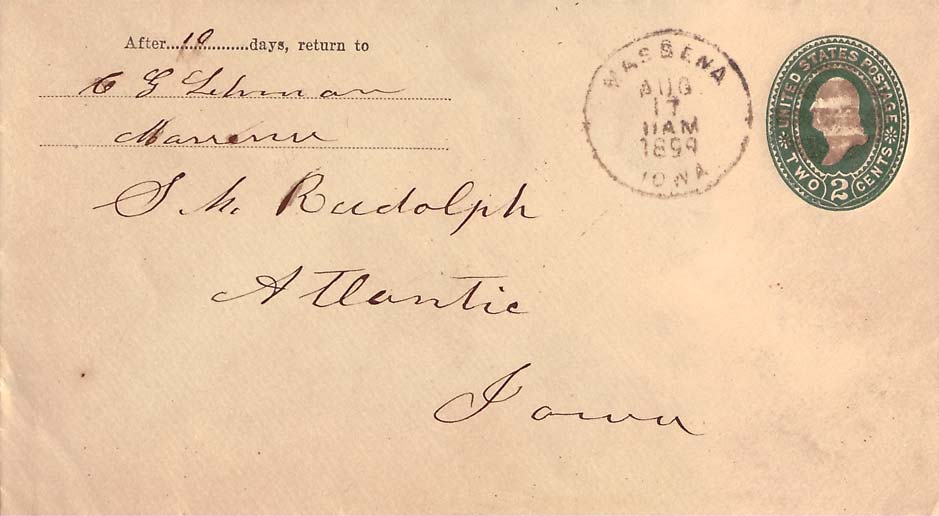 After 10 days, return to
C G Lehman
S. M. Rudolph
Atlantic
Iowa
MASSENA
AUG
17
11AM
1899
IOWA
UNITED STATES POSTAGE
TWO 2 CENTS